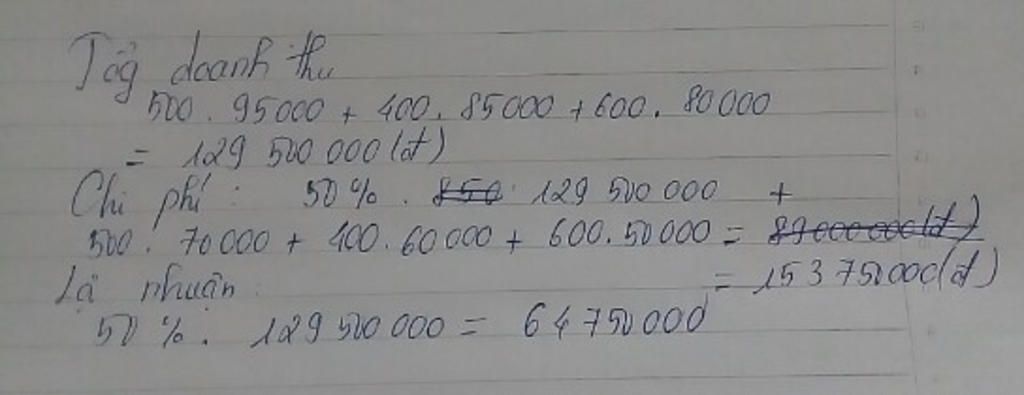 Tổg doanh thu
500 . 95000 + 400 . 85000 + 600 . 80000
= 129 500 000 (đ)
Chi phí : 50% . 850 129 500 000 +
500 . 70000 + 400 . 60000 + 600 . 50000 = 89000000 (đ)
= 153 750000 (đ)
Lợi nhuận :
50 % . 129 500 000 = 64 750 000